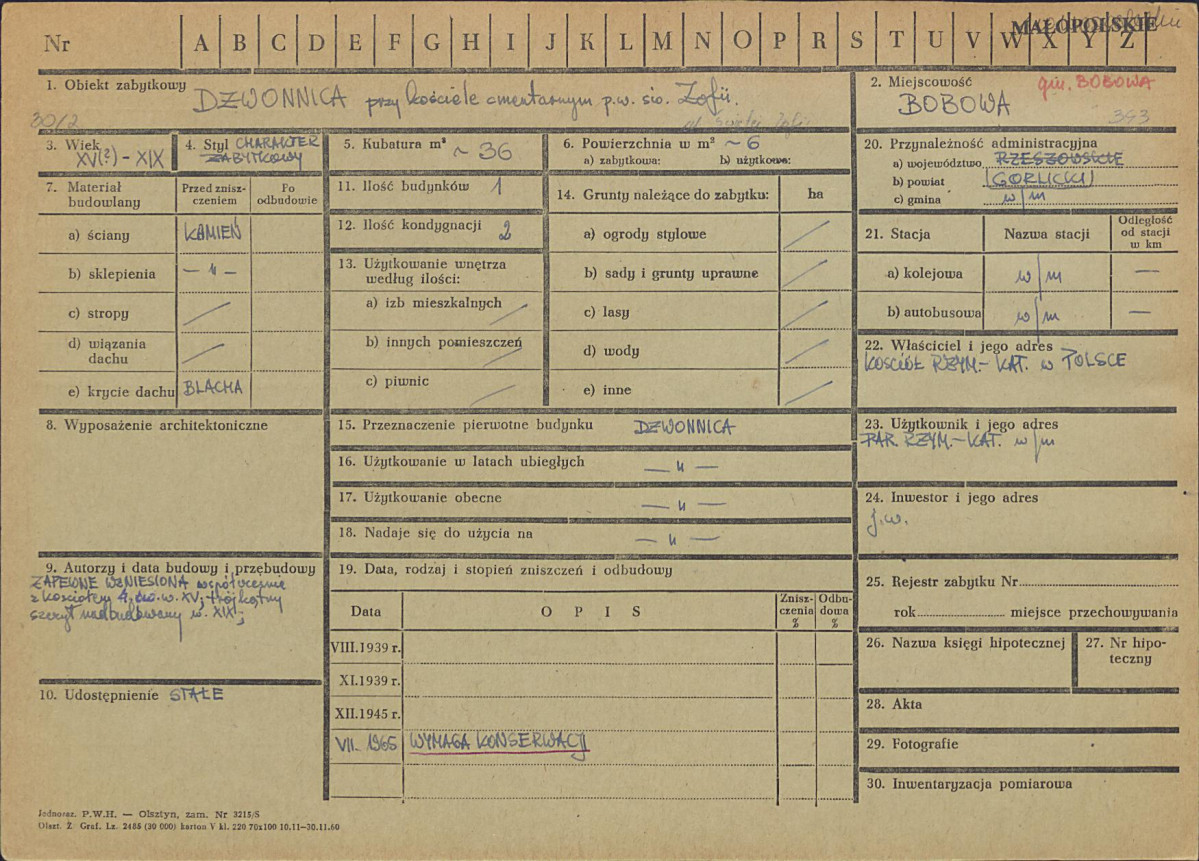 Nr A B C D E F G H I J K L M N O P R S T U V W X Y Z
MAŁOPOLSKIE
1. Obiekt zabytkowy DZWONNICA przy kościele cmentarnym p.w. św. Zofii.
30/2
ul. Świętej Zofii
2. Miejscowość gm. BOBOWA
BOBOWA
343
3. Wiek XV(?) - XIX
4. Styl CHARAKTER
ZABYTKOWY
5. Kubatura m³ ~ 36
6. Powierzchnia w m² ~ 6
a) zabytkowa: b) użytkowa:
7. Materiał budowlany
Przed zniszczeniem
Po odbudowie
a) ściany KAMIEŃ
b) sklepienia — " —
c) stropy /
d) wiązania dachu /
e) krycie dachu BLACHA
8. Wyposażenie architektoniczne
9. Autorzy i data budowy i przebudowy
ZAPEWNE WZNIESIONA współcześnie
z kościołem w. XV; trójkątny
szczyt nadbudowany w. XIX;
10. Udostępnienie STAŁE
11. Ilość budynków 1
12. Ilość kondygnacji 2
13. Użytkowanie wnętrza
według ilości:
a) izb mieszkalnych /
b) innych pomieszczeń /
c) piwnic /
14. Grunty należące do zabytku: ha
a) ogrody stylowe /
b) sady i grunty uprawne /
c) lasy /
d) wody /
e) inne /
15. Przeznaczenie pierwotne budynku DZWONNICA
16. Użytkowanie w latach ubiegłych — " —
17. Użytkowanie obecne — " —
18. Nadaje się do użycia na — " —
19. Data, rodzaj i stopień zniszczeń i odbudowy
Data O P I S Zniszczenia % Odbudowa %
VIII.1939 r.
XI.1939 r.
XII.1945 r.
VII. 1965 WYMAGA KONSERWACJI
20. Przynależność administracyjna
a) województwo RZESZOWSKIE
b) powiat GORLICKI
c) gmina w/m
21. Stacja Nazwa stacji Odległość od stacji w km
a) kolejowa w/m —
b) autobusowa w/m —
22. Właściciel i jego adres
KOŚCIÓŁ RZYM.- KAT. w POLSCE
23. Użytkownik i jego adres
PAR. RZYM.- KAT. w/m
24. Inwestor i jego adres
j.w.
25. Rejestr zabytku Nr
rok miejsce przechowywania
26. Nazwa księgi hipotecznej
27. Nr hipoteczny
28. Akta
29. Fotografie
30. Inwentaryzacja pomiarowa
Jednoraz. P.W.H. — Olsztyn, zam. Nr 3215/S
Olszt. Z. Graf. Lz. 2488 (30 000) karton V kl. 220 70x100 10.11—30.11.60